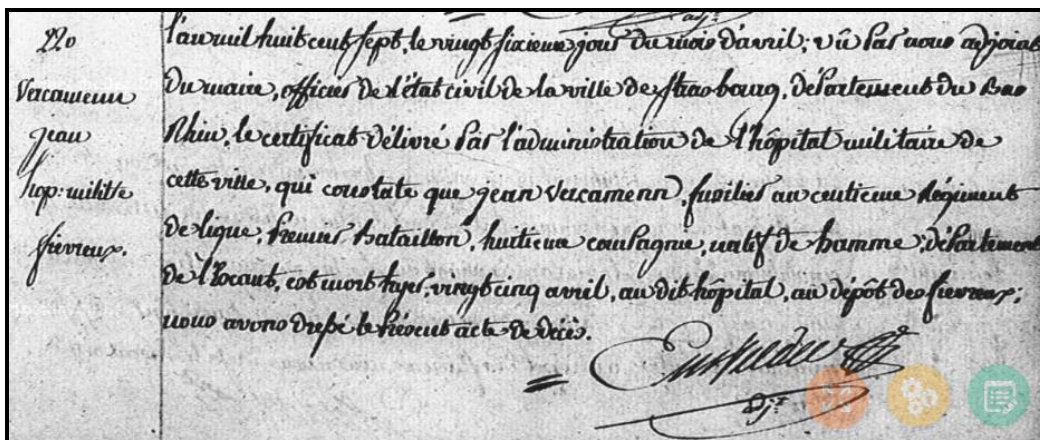 220
Vercamenn
jean
hop: militre
fievreux.
l'an mil huit cent sept, le vingt sixieme jour du mois d'avril; vû par nous adjoint
du maire, officier de l'état civil de la ville de strasbourg, département du Bas
Rhin, le certificat délivré par l'administration de l'hôpital militaire de
cette ville, qui constate que jean Vercamenn, fusilier au centieme Régiment
de ligne, premier bataillon, huitieme compagnie, natif de hamme, département
de l'Escaut, est mort hyer, vingt cinq avril, au dit hôpital, au dépôt des fievreux;
nous avons dressé le présent acte de décès.
adjt